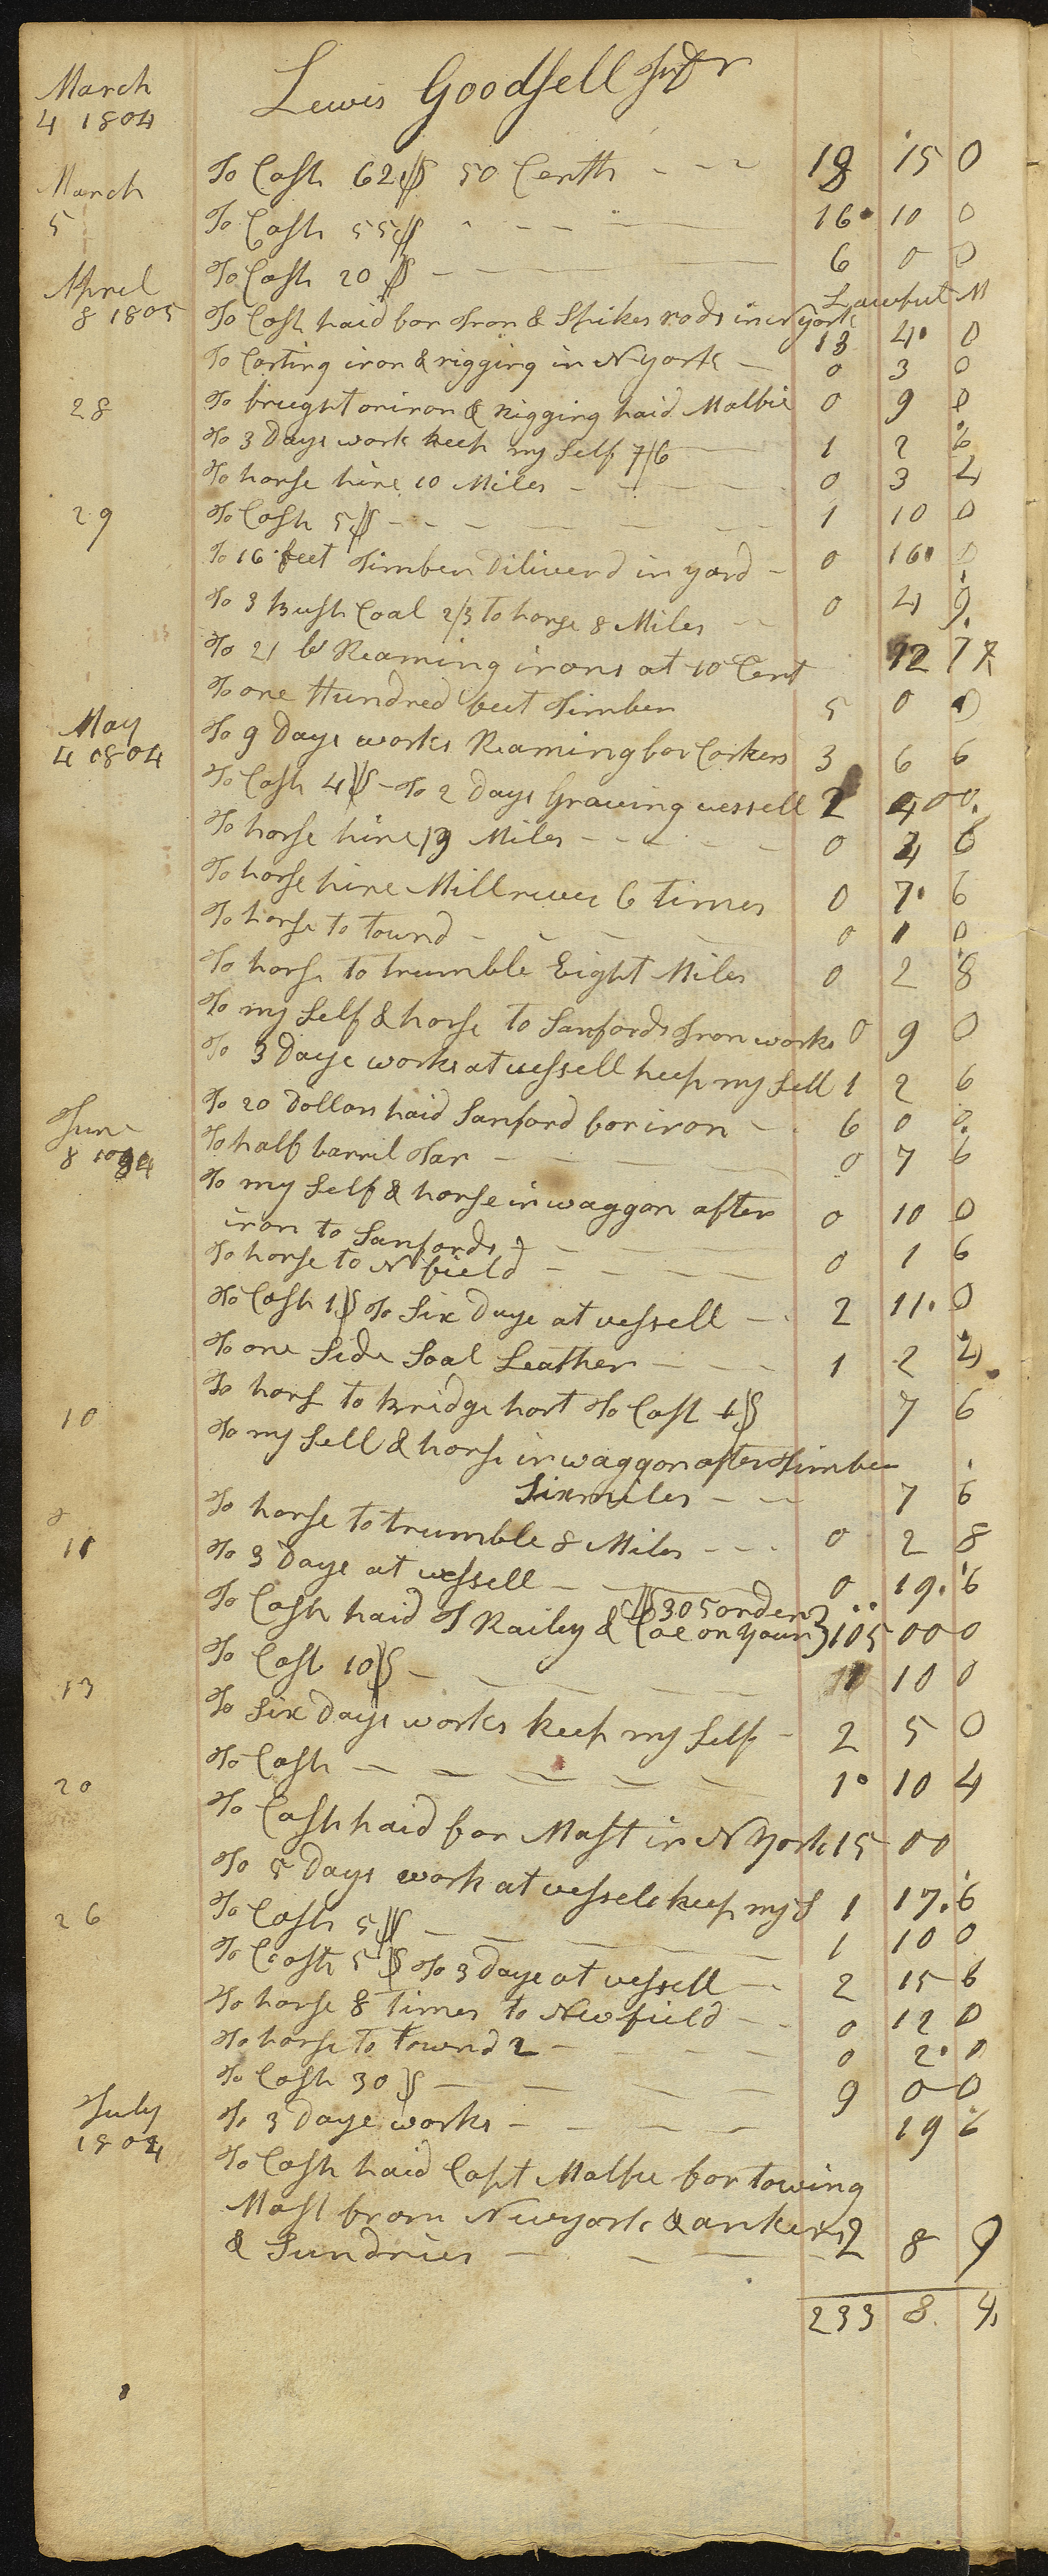 March
4 1804
Lewis Goodsell Jur Dr
To Cash 62$ 50 Centh 18 15 0
March
5
To Cash 55$ 16 10 0
To Cash 20$ 6 0 0
Lawful M
April
8 1805
To Cash paid for Iron & Spikes rods in N york 13 4 0
To Carting iron & rigging in N York 0 3 0
28
To freight on iron & Rigging paid Malbie 0 9 0
To 3 Days work keep my Self 7/6 1 2 6
To horse hire 10 Miles 0 3 4
29
To Cash 5$ 1 10 0
To 16 feet Timber Diliverd in yard 0 16 0
To 3 bush Coal 2/3 To horse 8 Miles 0 4 9
To 21 lb Reaming irons at 10 Cent 12 7
To one Hundred feet Timber 5 0 0
May
4 1804
To 9 Days works Reaming for Corkers 3 6 6
To Cash 4$ To 2 Days Graving vessell 2 4 00
To horse hire 13 Miles 0 4 6
To horse hire Millriver 6 times 0 7 6
To horse to townd 0 1 0
To horse to trumble Eight Miles 0 2 8
To my Self & horse to Sanfords Iron works 0 9 0
To 3 Days works at vessell keep my Self 1 2 6
To 20 Dollars paid Sanford for iron 6 0 0
June
8 1804
To half barril Tar 0 7 6
To my Self & horse in waggon after
iron to Sanfords 0 10 0
To horse to N field 0 1 6
To Cash 1$ To Six Days at vessell 2 11 0
To one Side Soal Leather 1 2 4
To hors to Bridgeport To Cash 1$ 7 6
10
To my Self & horse in waggon after Timber
Six miles 7 6
To horse to trumble 8 Miles 0 2 8
11
To 3 Days at vessell 0 19 6
$305 order
To Cash paid T Railey & Coe on your 105 00 0
To Cash 10$ 10 0
13
To Six Days works keep my Self 2 5 0
To Cash 1 10 4
20
To Cash paid for Mast in N York 15 00
To 5 Days work at vessels keep my S 1 17 6
26
To Cash 5$ 1 10 0
To Cash 5$ To 3 Days at vessell 2 15 6
To horse 8 times to Newfield 0 12 0
To horse to townd 2 0 2 0
To Cash 30$ 9 0 0
July
1804
To 3 Days works 19 6
To Cash paid Capt Malbie for towing
Mast from Newyork & ankers
& Sundries 2 8 9
233 8 4